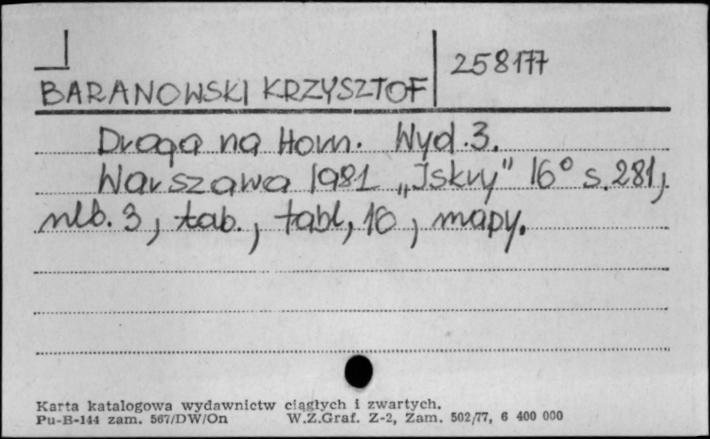 258177
BARANOWSKI KRZYSZTOF
Droga na Horn. Wyd. 3.
Warszawa 1981 „Iskry" 16° s. 281,
nlb. 3, tab., tabl, 16, mapy.
Karta katalogowa wydawnictw ciągłych i zwartych.
Pu-B-144 zam. 567/DW/On W.Z.Graf. Z-2, Zam. 502/77, 6 400 000